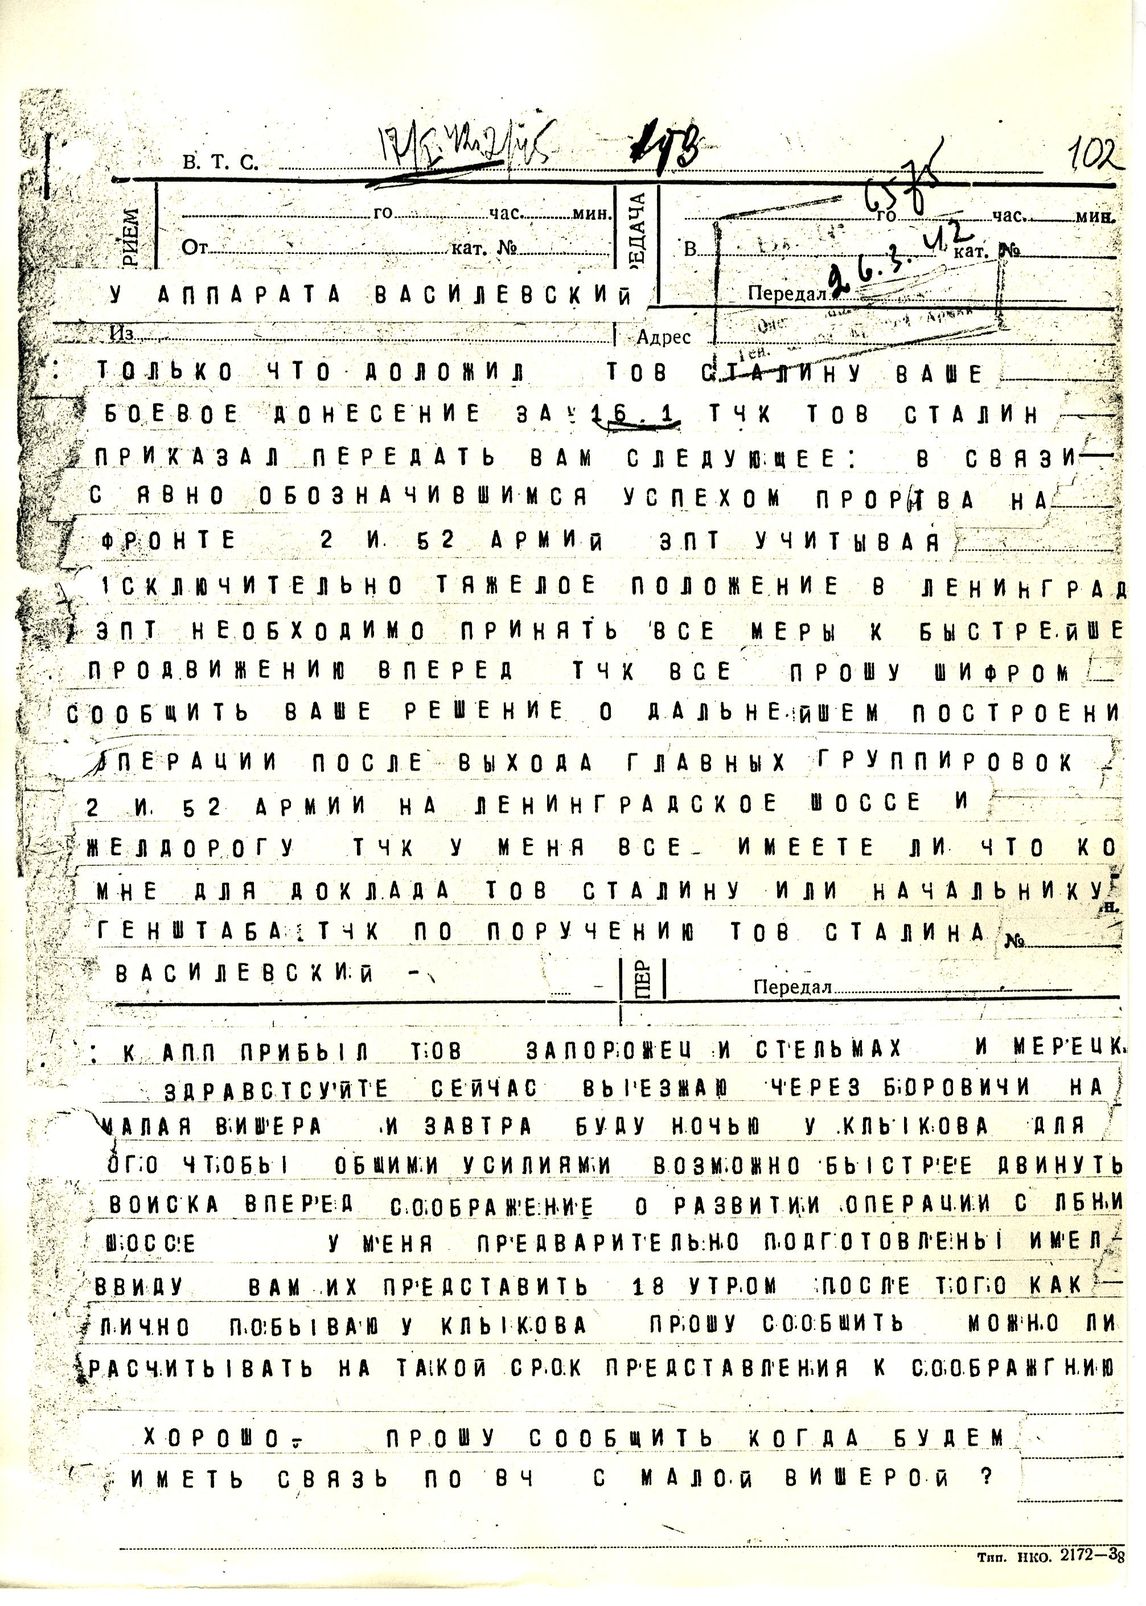 В. Т. С. 102
РИЕМ го час. мин. ЕДАЧА 6575 го час. мин.
От кат. № В 26.3.42 кат. №
У АППАРАТА ВАСИЛЕВСКИЙ Передал
Из Адрес
: ТОЛЬКО ЧТО ДОЛОЖИЛ ТОВ СТАЛИНУ ВАШЕ
БОЕВОЕ ДОНЕСЕНИЕ ЗА 16.1 ТЧК ТОВ СТАЛИН
ПРИКАЗАЛ ПЕРЕДАТЬ ВАМ СЛЕДУЮЩЕЕ: В СВЯЗИ
С ЯВНО ОБОЗНАЧИВШИМСЯ УСПЕХОМ ПРОРЫВА НА
ФРОНТЕ 2 И 52 АРМИЙ ЗПТ УЧИТЫВАЯ
ІСКЛЮЧИТЕЛЬНО ТЯЖЕЛОЕ ПОЛОЖЕНИЕ В ЛЕНИНГРАД
ЗПТ НЕОБХОДИМО ПРИНЯТЬ ВСЕ МЕРЫ К БЫСТРЕЙШЕ
ПРОДВИЖЕНИЮ ВПЕРЕД ТЧК ВСЕ ПРОШУ ШИФРОМ
СООБЩИТЬ ВАШЕ РЕШЕНИЕ О ДАЛЬНЕЙШЕМ ПОСТРОЕНИ
ОПЕРАЦИИ ПОСЛЕ ВЫХОДА ГЛАВНЫХ ГРУППИРОВОК
2 И 52 АРМИИ НА ЛЕНИНГРАДСКОЕ ШОССЕ И
ЖЕЛДОРОГУ ТЧК У МЕНЯ ВСЕ- ИМЕЕТЕ ЛИ ЧТО КО
МНЕ ДЛЯ ДОКЛАДА ТОВ СТАЛИНУ ИЛИ НАЧАЛЬНИКУ
н.
ГЕНШТАБА ТЧК ПО ПОРУЧЕНИЮ ТОВ СТАЛИНА №
ВАСИЛЕВСКИЙ - ПЕР Передал
: К АПП ПРИБЫЛ ТОВ ЗАПОРОЖЕЦ И СТЕЛЬМАХ И МЕРЕЦК
ЗДРАВСТСУЙТЕ СЕЙЧАС ВЫЕЗЖАЮ ЧЕРЕЗ БОРОВИЧИ НА
МАЛАЯ ВИШЕРА И ЗАВТРА БУДУ НОЧЬЮ У КЛЫКОВА ДЛЯ
ОГО ЧТОБЫ ОБШИМИ УСИЛИЯМИ ВОЗМОЖНО БЫСТРЕЕ ДВИНУТЬ
ВОИСКА ВПЕРЕД СООБРАЖЕНИЕ О РАЗВИТИИ ОПЕРАЦИИ С ЛБНИ
ШОССЕ У МЕНЯ ПРЕДВАРИТЕЛЬНО ПОДГОТОВЛЕНЫ ИМЕЛ
ВВИДУ ВАМ ИХ ПРЕДСТАВИТЬ 18 УТРОМ ПОСЛЕ ТОГО КАК
ЛИЧНО ПОБЫВАЮ У КЛЫКОВА ПРОШУ СООБШИТЬ МОЖНО ЛИ
РАСЧИТЫВАТЬ НА ТАКОЙ СРОК ПРЕДСТАВЛЕНИЯ К СООБРАЖГНИЮ
ХОРОШО- ПРОШУ СООБЩИТЬ КОГДА БУДЕМ
ИМЕТЬ СВЯЗЬ ПО ВЧ С МАЛОЙ ВИШЕРОЙ ?
Тип. НКО. 2172—38